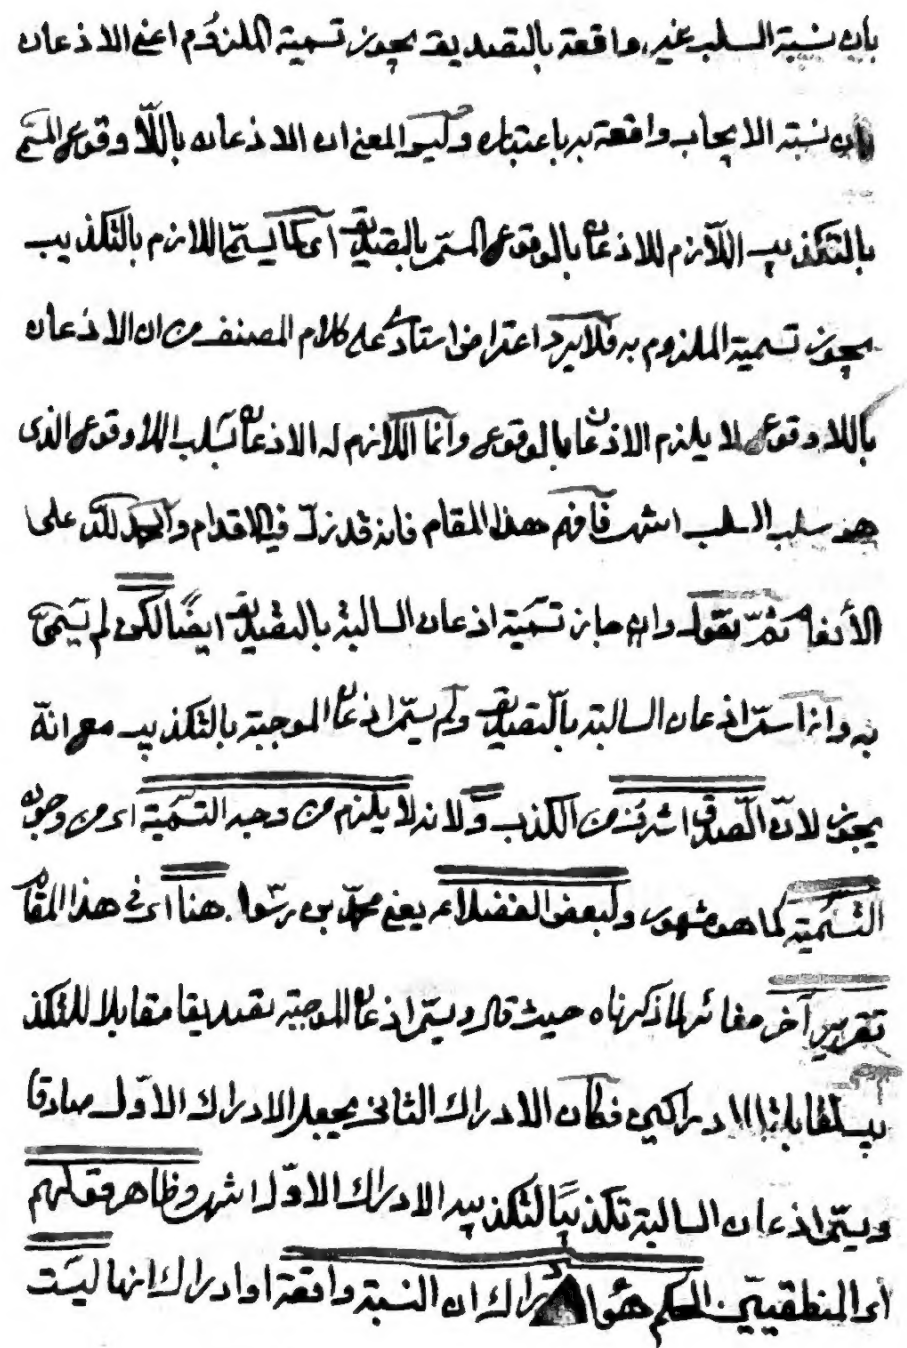 بان نسبة السلب غير واقعة بالتصديق يجوز تسمية الملزوم اعنى الاذعان
بان نسبة الايجاب واقعة به باعتباره وليس المعنى ان الاذعان باللّا وقوع المسمى
بالتكذيب اللّازم للاذعان بالوقوع المسمى بالتصديق اى كما يسمى اللازم بالتكذيب
يجوز تسمية الملزوم به فلا يرد اعتراض استادى على كلام المصنف من ان الاذعان
باللا وقوع لا يلزم الاذعان بالوقوع وانما اللّازم له الاذعان بسلب اللا وقوع الذى
هو سلب السلب انتهى فافهم هذا المقام فانه قد زلّ فيه الاقدام والحمد للّه على
الأنعام ثمّ نقول وان جاز تسمية اذعان السالبة بالتصديق ايضًا لكن لم يسمّ
به وانما سمّى اذعان السالبة بالتصديق ولم يسمّ اذعان الموجبة بالتكذيب مع انّه
يجوز لانّ الصّدق اشرف من الكذب ولانه لا يلزم من وجه التسمية اى من وجوده
التّسمية كما هو مشهور ولبعض الفضلاء يعنى محمّد بن رسول هنا اى فى هذا المقام
تقرير آخر مغائر لما ذكرناه حيث قال ويسمّى اذعان الموجبة تصديقا مقابلا للتكذ
يب لتقابل الادراكين فكان الادراك الثانى يجعل الادراك الاوّل صادقا
ويسمّى اذعان السالبة تكذيبًا لتكذيبه الادراك الاوّل انتهى وظاهر قولهم
أى المنطقيّين الحكم هو ادراك ان النسبة واقعة او ادراك انها ليست